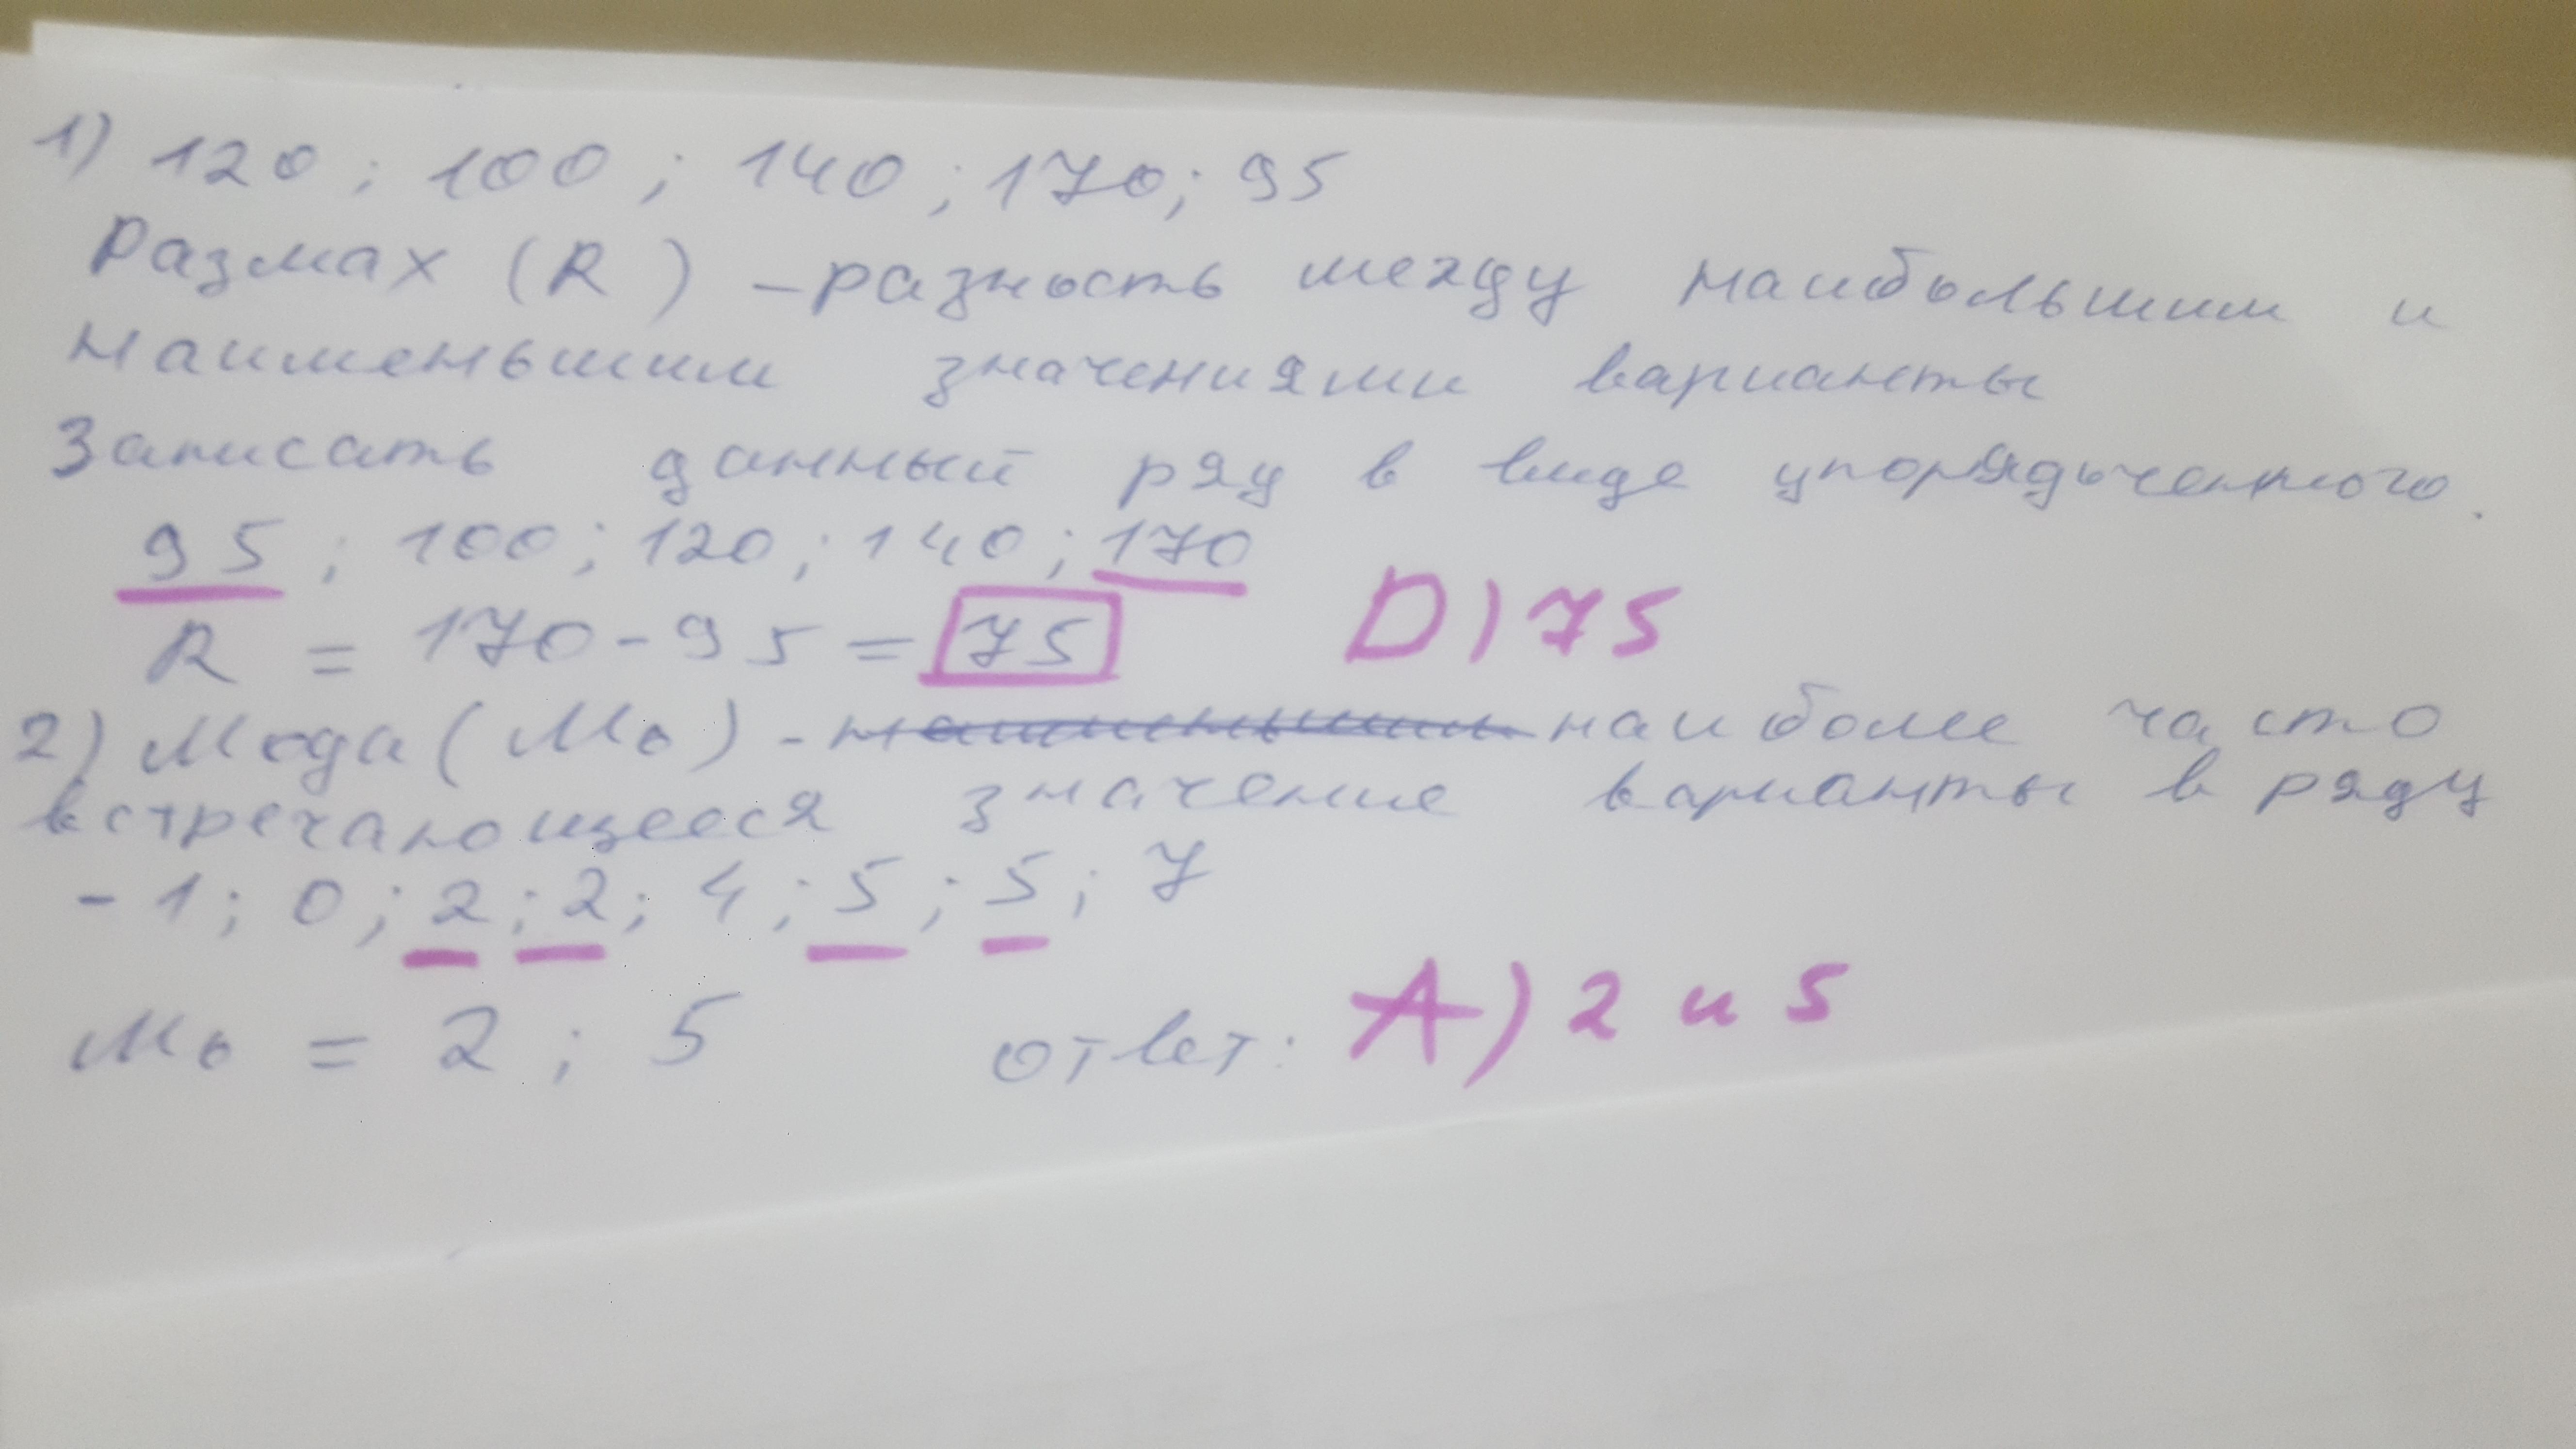 1) 120 ; 100 ; 140 ; 170 ; 95
Размах (R) - разность между наибольшим и
наименьшим значениями варианты
Записать данный ряд в виде упорядоченного.
95 ; 100 ; 120 ; 140 ; 170
R = 170 - 95 = 75 D) 75
2) Мода (Мо) - наименьшим наиболее часто
встречающееся значение варианты в ряду
-1 ; 0 ; 2 ; 2 ; 4 ; 5 ; 5 ; 7
Мо = 2 ; 5 ответ: А) 2 и 5